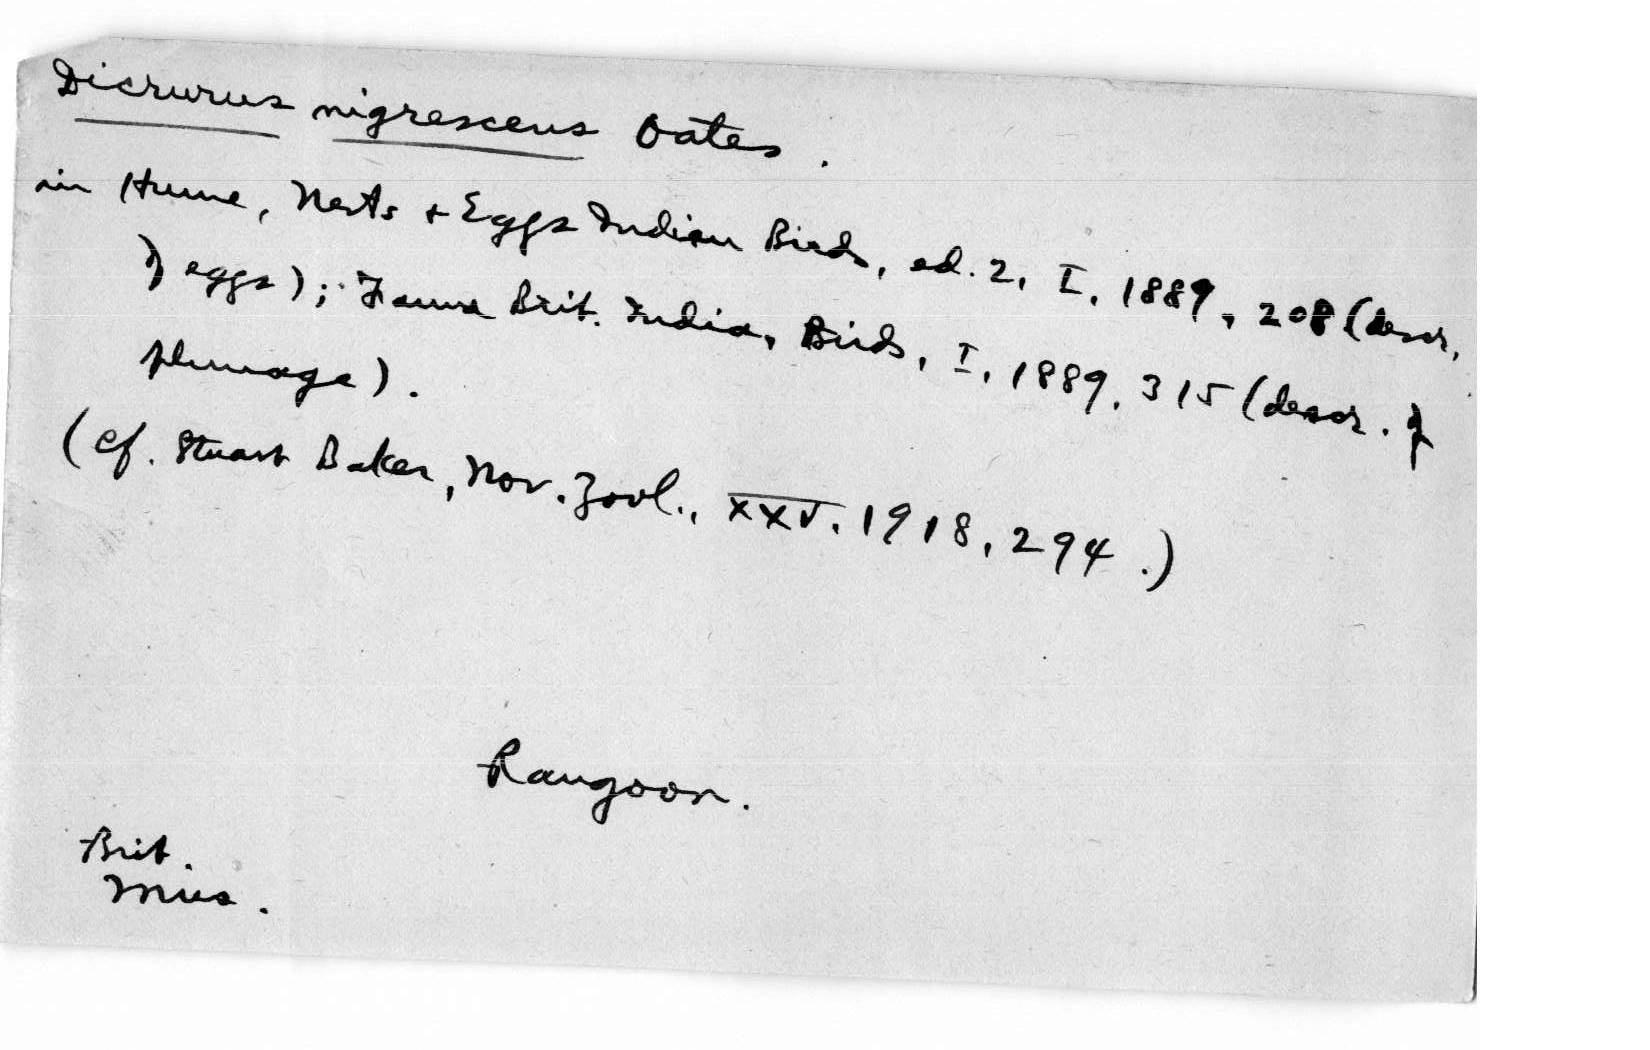 Dicrurus nigrescens Oates.
in Hume, Nests + Eggs Indian Birds, ed. 2, I, 1889, 208 (descr.
of eggs); Fauna Brit. India, Birds, I, 1889, 315 (descr. of
plumage).
(cf. Stuart Baker, Nov. Zool., XXV, 1918, 294.)
Rangoon.
Brit.
Mus.